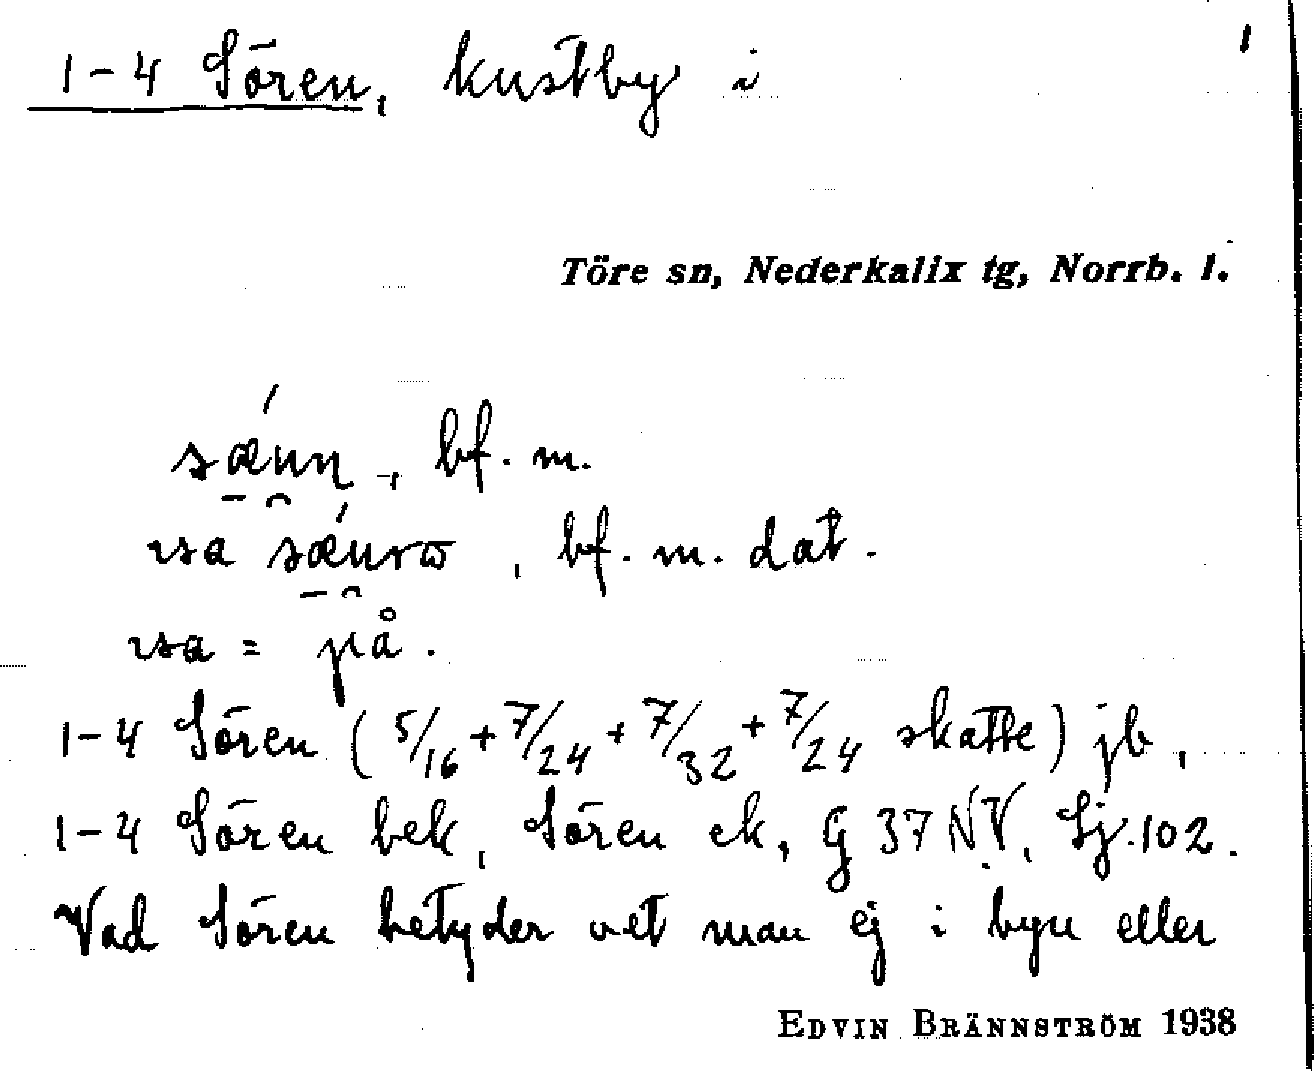 1
1-4 Sören, kustby i
Töre sn, Nederkalix tg, Norrb. l.
bf. m.
bf. m. dat.
= på.
1-4 Sören (5/16+7/24+7/32+7/24 skatte) jb,
1-4 Sören bek, Sören ek, G 37 N.V, Sj. 102.
Vad Sören betyder vet man ej i byn eller
EDVIN BRÄNNSTRÖM 1938